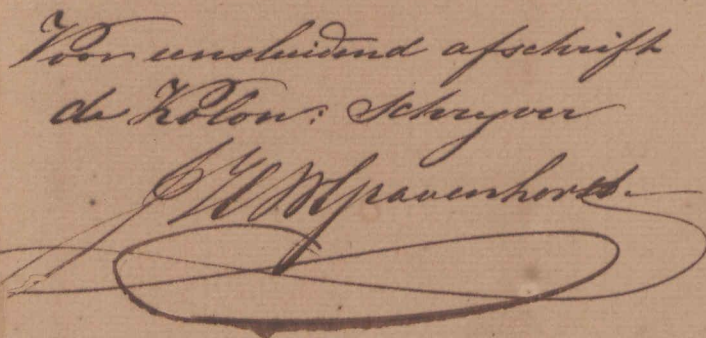 Voor eensluidend afschrift
de Kolon: Schryver
J H M Gravenhorst.